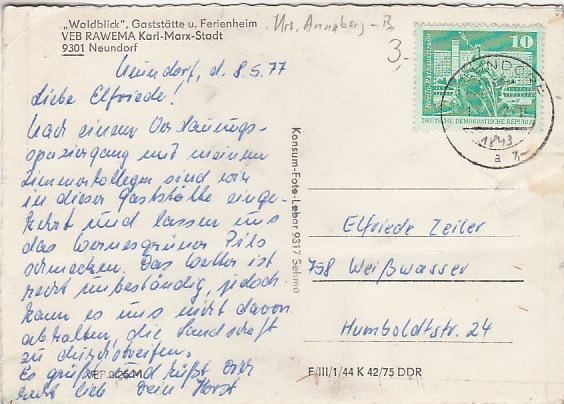 „Waldblick", Gaststätte u. Ferienheim
VEB RAWEMA Karl-Marx-Stadt
9301 Neundorf
Krs. Annaberg-B
3,-
10
Berlin-Rathausstraße
DEUTSCHE DEMOKRATISCHE REPUBLIK
NEUNDORF
1843
a
7,-
Neundorf, d. 8.5.77
Liebe Elfriede!
Nach einem Verdauungs-
spaziergang mit meinem
Zimmerkollegen sind wir
in dieser Gaststätte einge-
kehrt und lassen uns
das Wernesgrüner Pils
schmecken. Das Wetter ist
recht unbeständig, jedoch
kann es uns nicht davon
abhalten, die Landschaft
zu durchstreifen.
Es grüßt und küßt Dich
recht lieb Dein Horst
Konsum-Foto-Lebar 9317 Sehma
Elfriede Zeiler
758 Weißwasser
Humboldtstr. 24
F/III/1/44 K 42/75 DDR